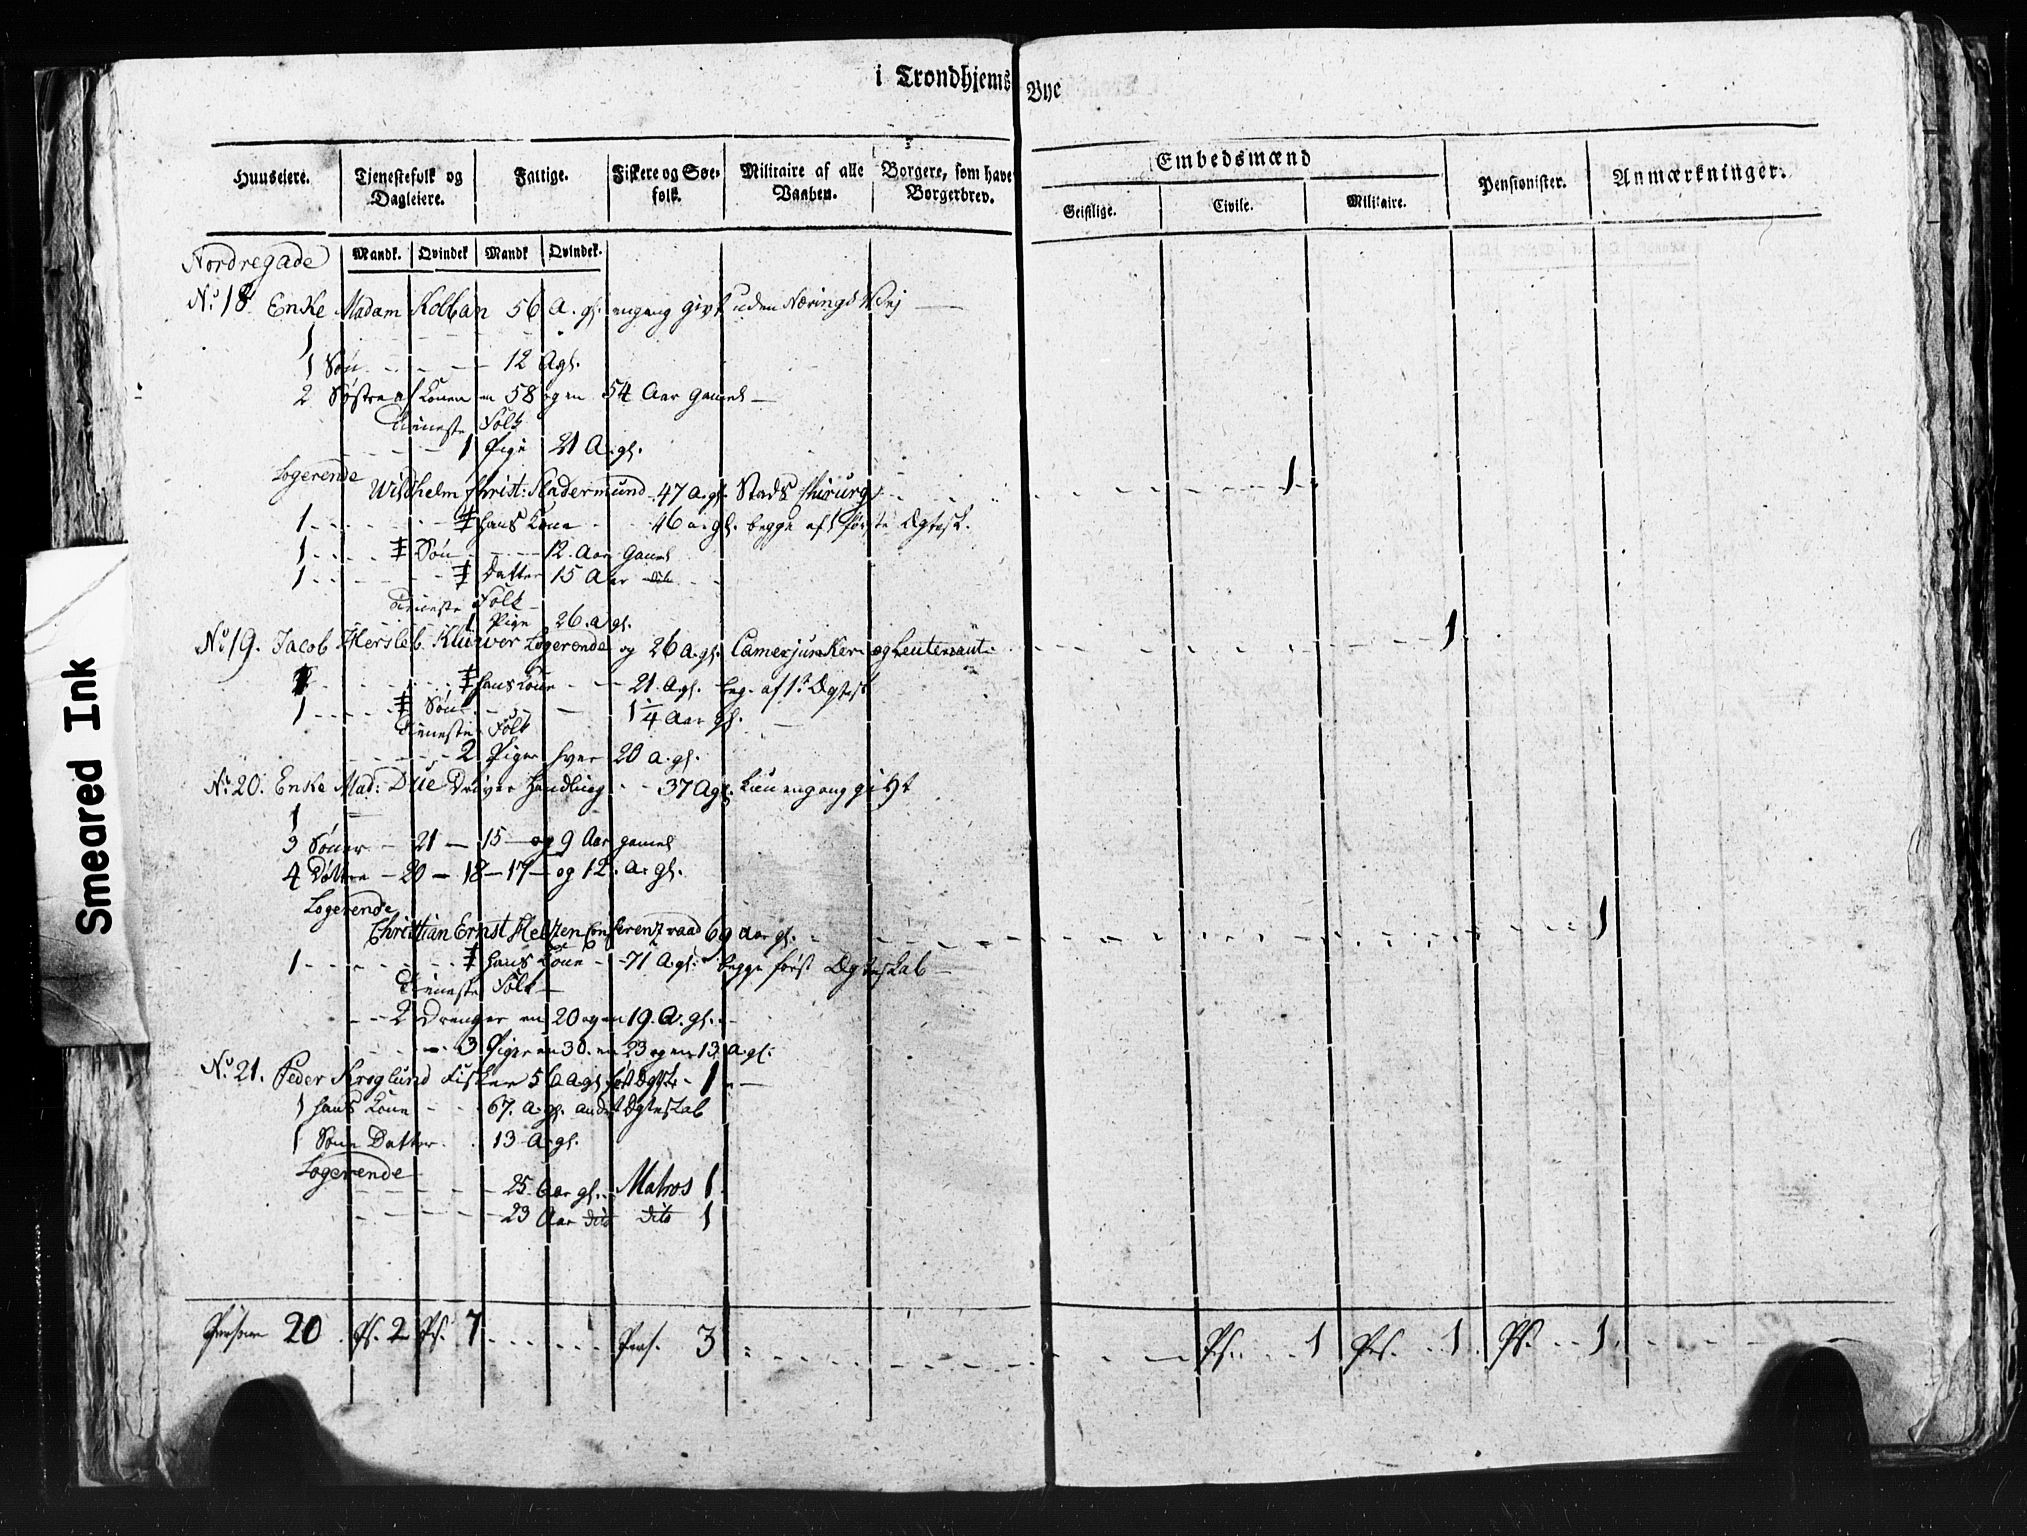 i Trondhjems Bye
Huuseiere. Tjenestefolk og Dagleiere. Fattige. Fiskere og Søe-folk. Militaire af alle Vaaben. Borgere, som have Borgerbrev. Embedsmænd Pensionister. Anmærkninger.
Geistlige. Civile. Militaire.
Mandk. Qvindek Mandk Qvindek.
Nordregade
No. 18 Enke Madam Kolban 56 A. gl. engang givt uden Nærings Vej
1
1 Søn 12 A gl.
2 Søstre af Konen en 58 og en 54 Aar gamel
Tieneste Folk
1 Pige 21 A. gl.
Logerende
Wilhelm Christ: 47 A. gl. Stads Chirurg 1
1 hans Kone 46 a. gl. begge af første Ægtesk.
1 Søn 12. Aar Gamel
1 Datter 15 Aar dito
Tieneste Folk
1 Pige 26. a gl.
No. 19. Jacob Hersleb Klüwer Logerende og 26 a. gl. Camerjunker og Leutenant 1
1 hans Kone 21. A gl. beg. af 1te Ægtesk
1 Søn 1/4 Aar gl.
Tieneste Folk
2 Piger hver 20 a. gl.
No. 20. Enke Mad: Due Driver Handling 37 A gl. kun engang gift
1
3 Sønner 21 — 15 — og 9 Aar gamel
4 Døttre — 20 — 18 — 17 — og 12. Ar gl.
Logerende
Christian Ernst Helzen Conferentzraad 69 Aar gl. 1
1 hans Kone 71 A. gl. begge først Ægteskab
Tieneste Folk
2 Drenge en 20 og en 19. A. gl.
3 Piger en 30. en 23 og en 13 a. gl.
No. 21. Peder Kroglund Fisker 56 A gl. først Ægte 1
1 hans Kone 67. a. gl. andet Ægteskab
1 Sønne Datter 13 A. gl.
Logerende
25 Aar gl. Matros 1
23 Aar dito dito 1
Personer 20 Ps. 2 Ps. 7 Pers. 3 Ps. 1 Ps. 1 Ps. 1
Smeared Ink